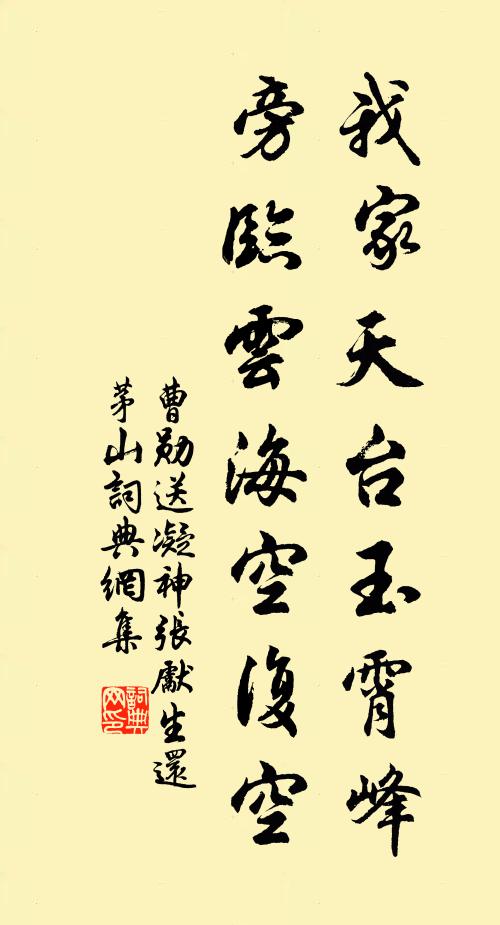 我家天台玉霄峰
旁臨雲海空復空
曹勛送凝神張獻生還
茅山詞典網集
詞典网印